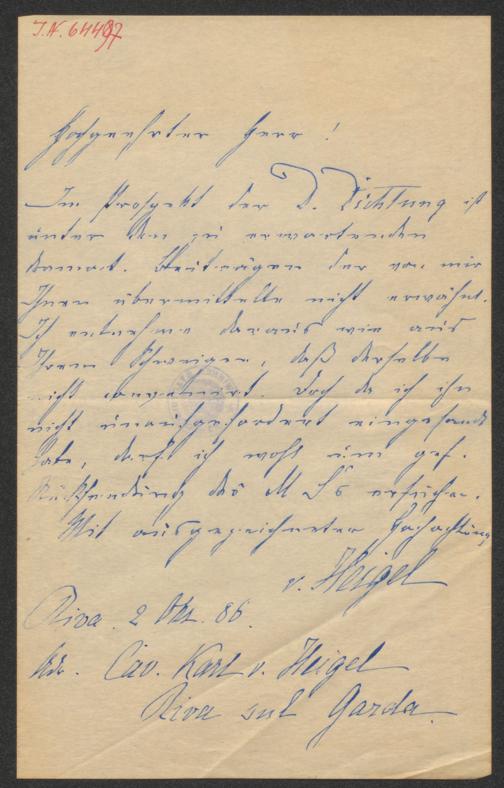 I.N. 64497
Hochgeehrter Herr!
Im Prospekt der D. Dichtung ist
unter den zu erwartenden
dramat. Beiträgen der von mir
Ihnen übermittelte nicht erwähnt.
Ich entnehme daraus wie aus
Ihrem Schweigen, daß derselbe
nicht convenirt. Doch da ich ihn
nicht unaufgefordert eingesandt
habe, darf ich wohl um gef.
Rücksendung des MSs ersuchen.
Mit ausgezeichneter Hochachtung
v. Heigel
Riva. 2 Okt. 86.
Adr. Cav. Karl v. Heigel
Riva sul Garda.